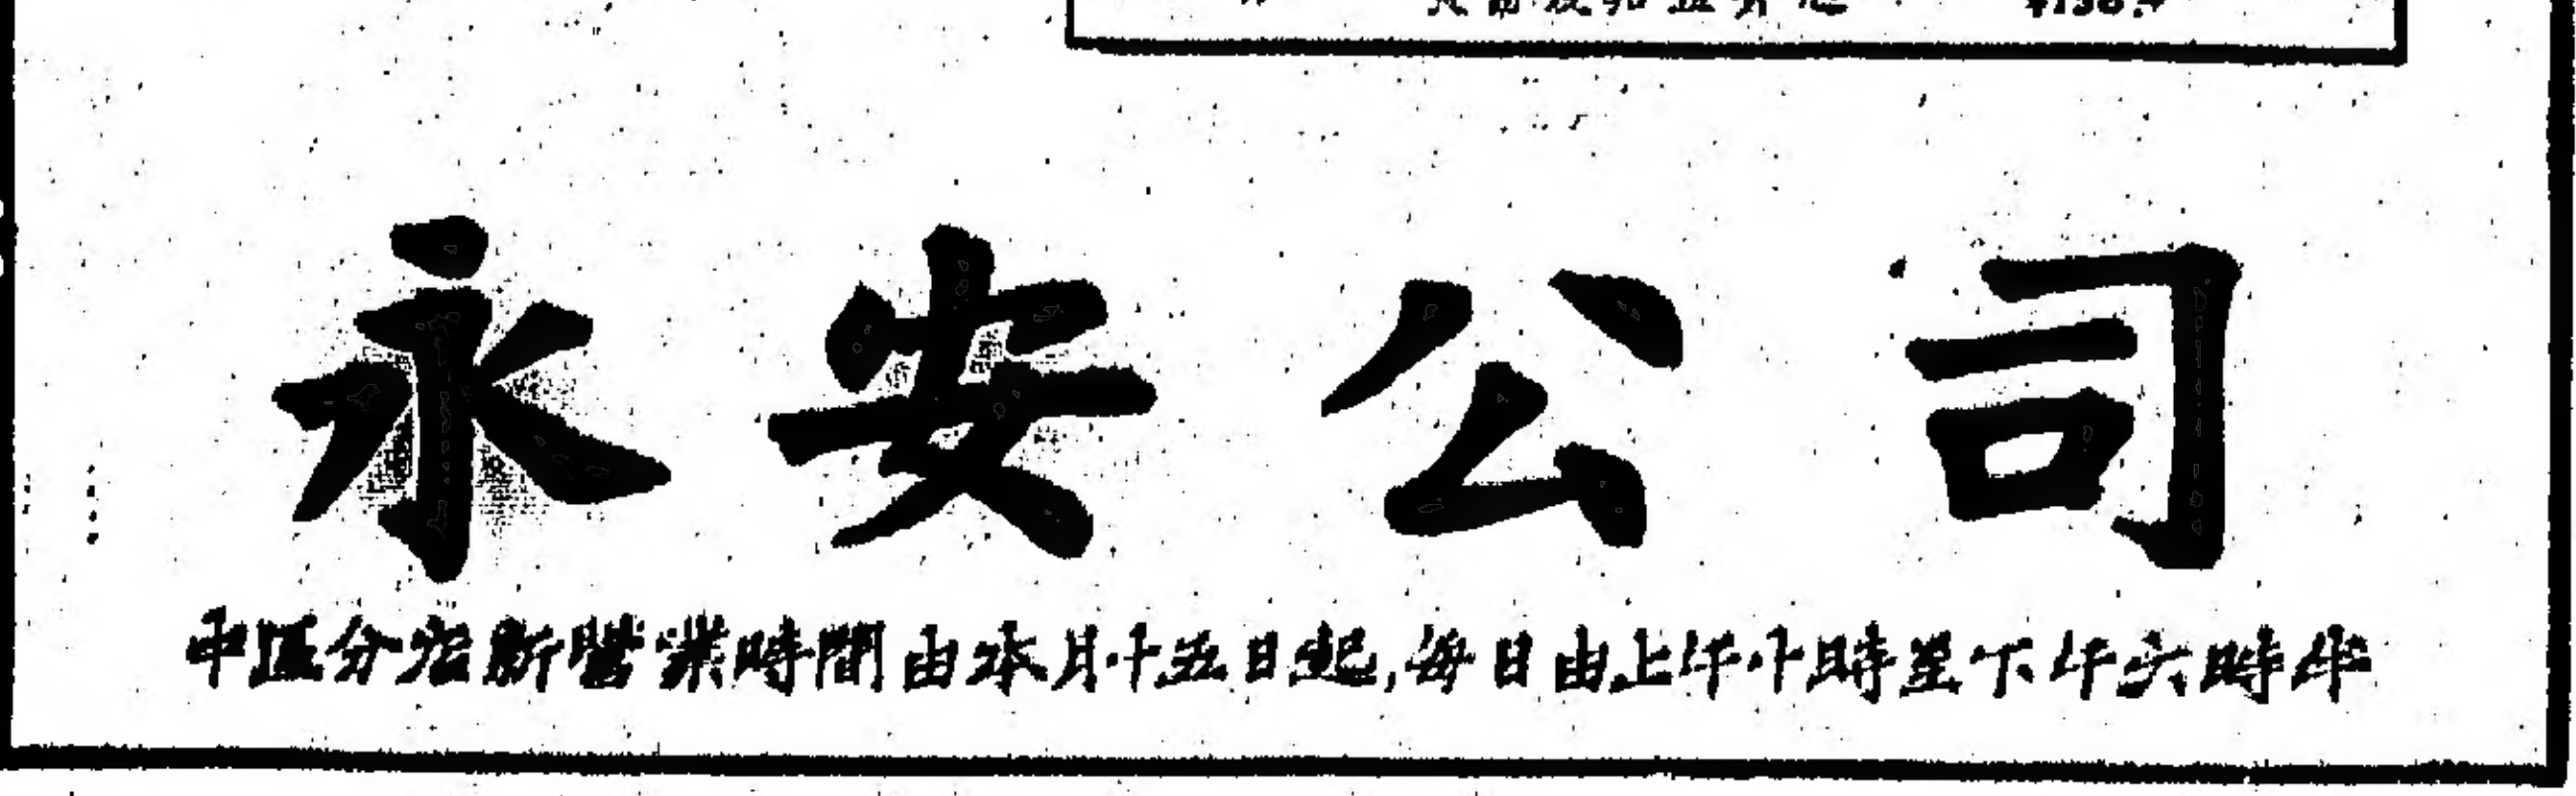 永安公司
中區分店新營業時間由本月十五日起,每日由上午十時至下午六時半